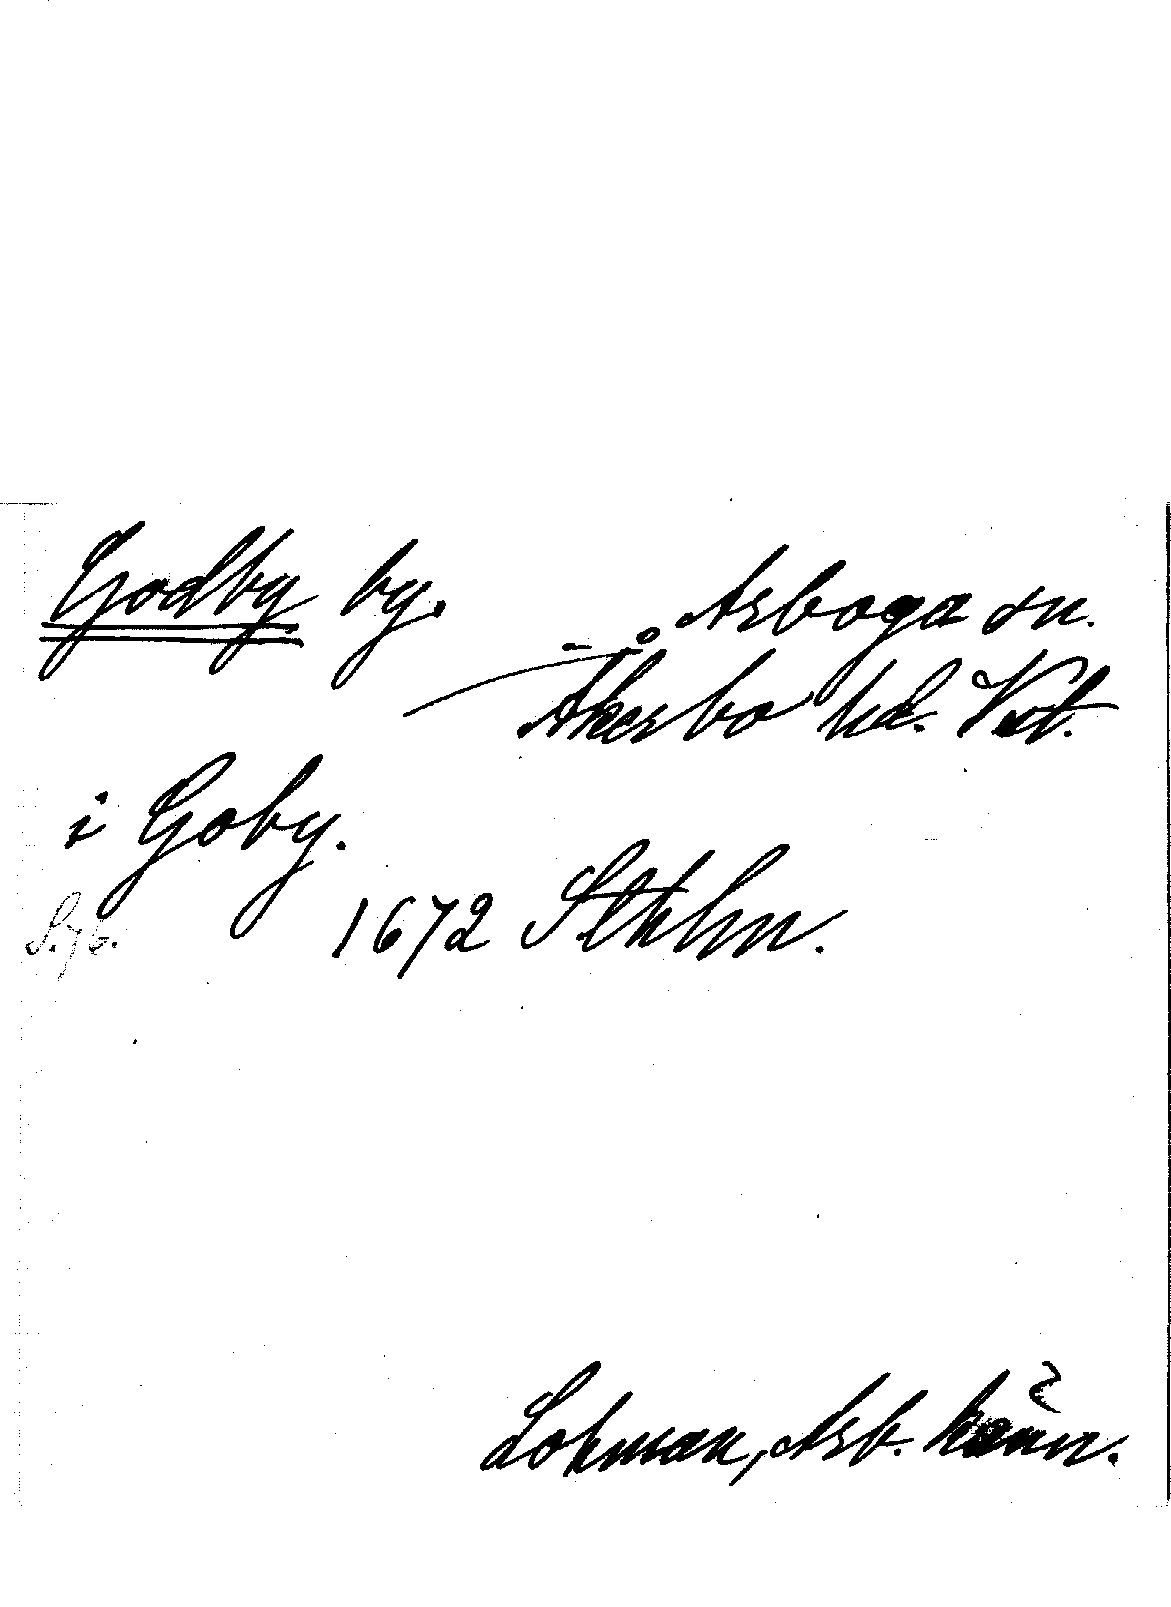 Godby by. Arboga sn.
Åkerbo hd. Vstl.
i Goby.
S. 76. 1672 Stkhm.
Lohman, Arb. känn.